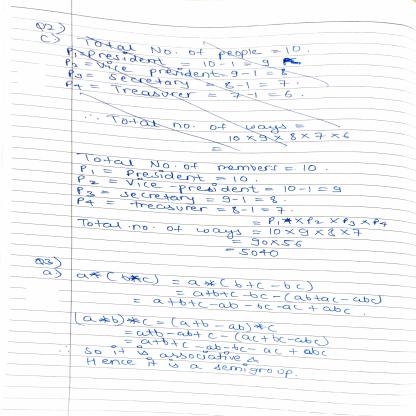 Q2)
c) Total No. of people = 10.
P1 = President = 10-1 = 9
P2 = Vice president = 9-1 = 8
P3 = Secretary = 8-1 = 7.
P4 = Treasurer = 7-1 = 6.
∴ Total no. of ways =
= 10 × 9 × 8 × 7 × 6
Total No. of members = 10.
P1 = President = 10.
P2 = Vice-president = 10-1 = 9
P3 = secretary = 9-1 = 8.
P4 = treasurer = 8-1 = 7.
= P1 × P2 × P3 × P4
Total no. of ways = 10 × 9 × 8 × 7
= 90 × 56
= 5040
Q3)
a) a*(b*c) = a*(b+c-bc)
= a+b+c-bc-(ab+ac-abc)
= a+b+c-ab-bc-ac+abc.
(a*b)*c = (a+b-ab)*c
= a+b-ab+c-(ac+bc-abc)
= a+b+c-ab-bc-ac+abc
∴ So it is associative &
Hence it is a semigroup.